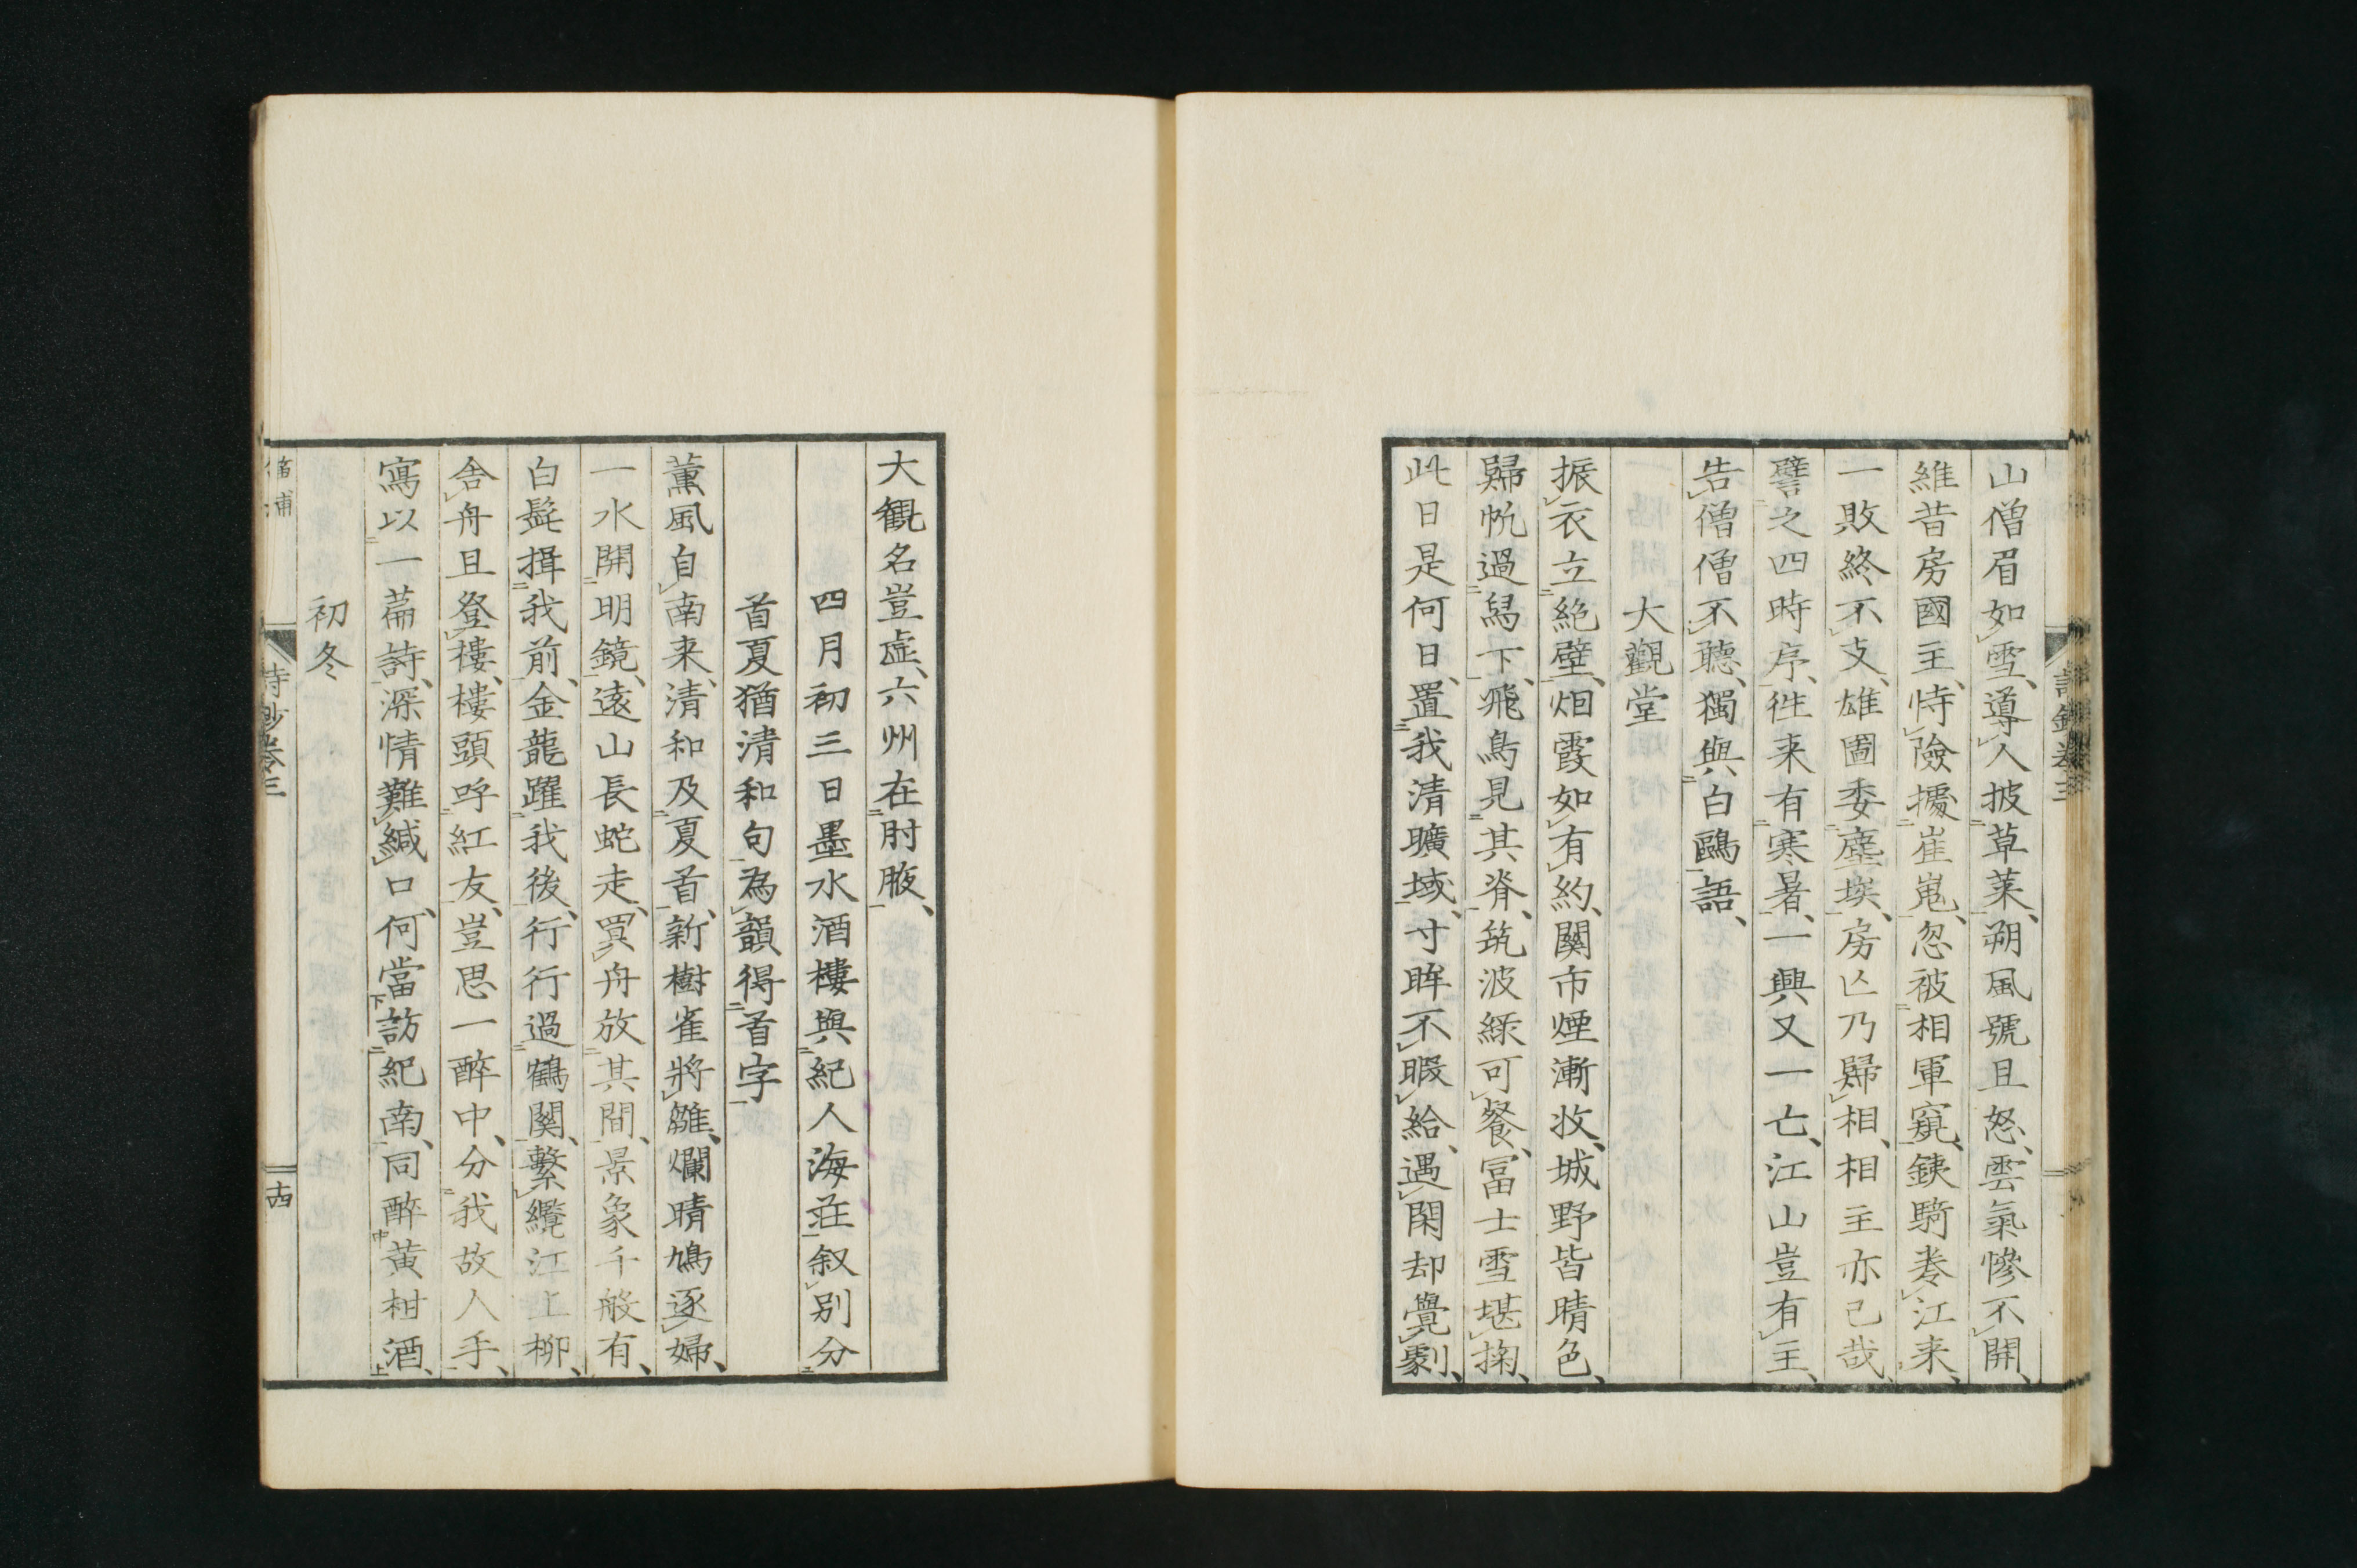 山僧眉如雪、導人披草莱、朔風號且怒、雲氣慘不開、
維昔房國主、恃險擾崔嵬、忽被相軍窺、銕騎券江来、
一敗終不支、雄圖委塵埃、房亾乃歸相、相主亦已哉、
譬之四時序、徃来有寒暑、一興又一亡、江山豈有主、
告僧僧不聴、獨與白鷗語、
大觀堂
振衣立絶壁、烟霞如有約、關市煙漸收、城野皆晴色、
歸帆過舄下、飛鳥見其脊、筑波緑可餐、冨士雪堪掬、
此日是何日、置我清曠域、寸眸不暇給、遇閑却覺劇、
詩鈔卷三
大観名豈虚、六州在肘腋、
四月初三日墨水酒樓與紀人海荘叙别分
首夏猶清和句為韻得首字
薰風自南来、清和及夏首、新樹雀將雛、爛晴鳩逐婦、
一水開明鏡、遠山長蛇走、買舟放其間、景象千般有、
白髯揖我前、金龍躍我後、行行過鶴關、繫纜江上柳、
舎舟且登樓、樓頭呼紅友、豈思一醉中、分我故人手、
寫以一萹詩、深情難緘口、何當訪紀南、同醉黄柑酒、
初冬
詩鈔卷三
十四